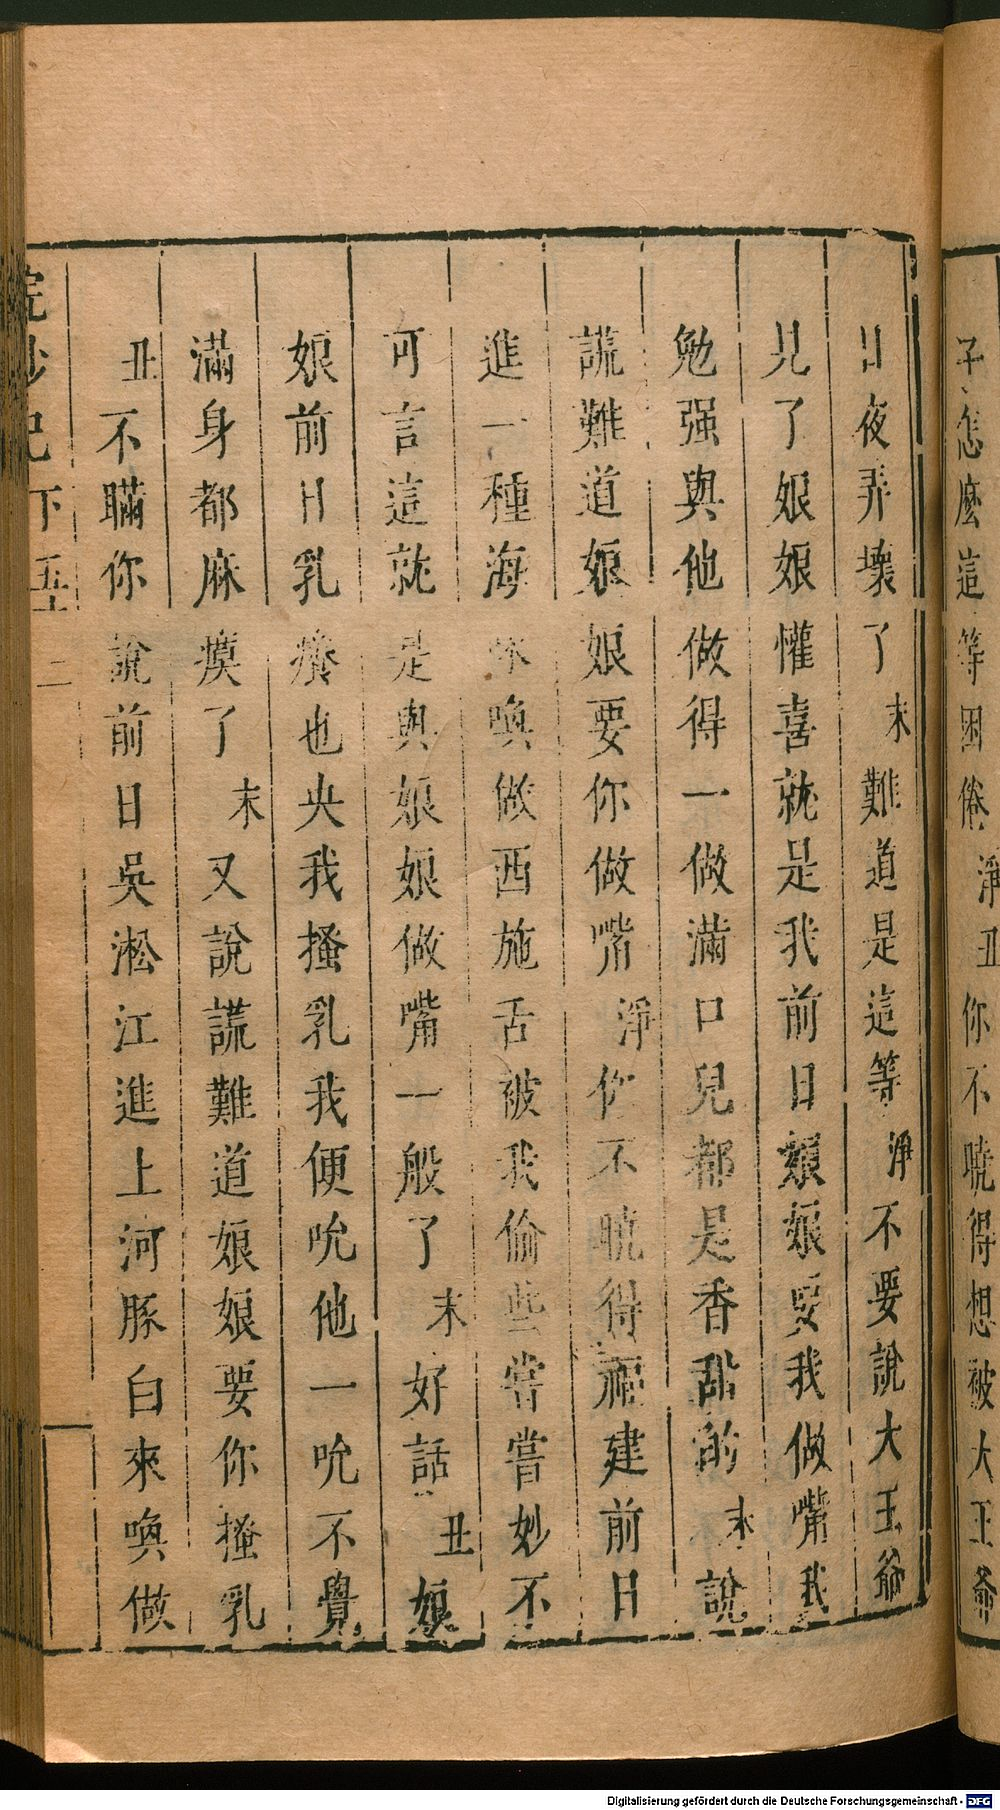 子怎麽這等困倦淨丑你不曉得想被大王爷
日夜弄壞了末難道是這等淨不要說大王爷
見了娘娘懽喜就是我前日娘娘要我做嘴我
勉强與他做得一做滿口兒都是香甜的末說
謊難道娘娘要你做嘴淨你不曉得福建前日
進一種海味喚做西施舌被我偷些嘗嘗妙不
可言這就是與娘娘做嘴一般了末好話丑娘
娘前日乳癢也央我搔乳我便吮他一吮不覺
滿身都麻瘼了末又說謊難道娘娘要你搔乳
丑不瞞你說前日吳淞江進上河豚白來喚做
浣紗記下 二
Digitalisierung gefördert durch die Deutsche Forschungsgemeinschaft - DFG